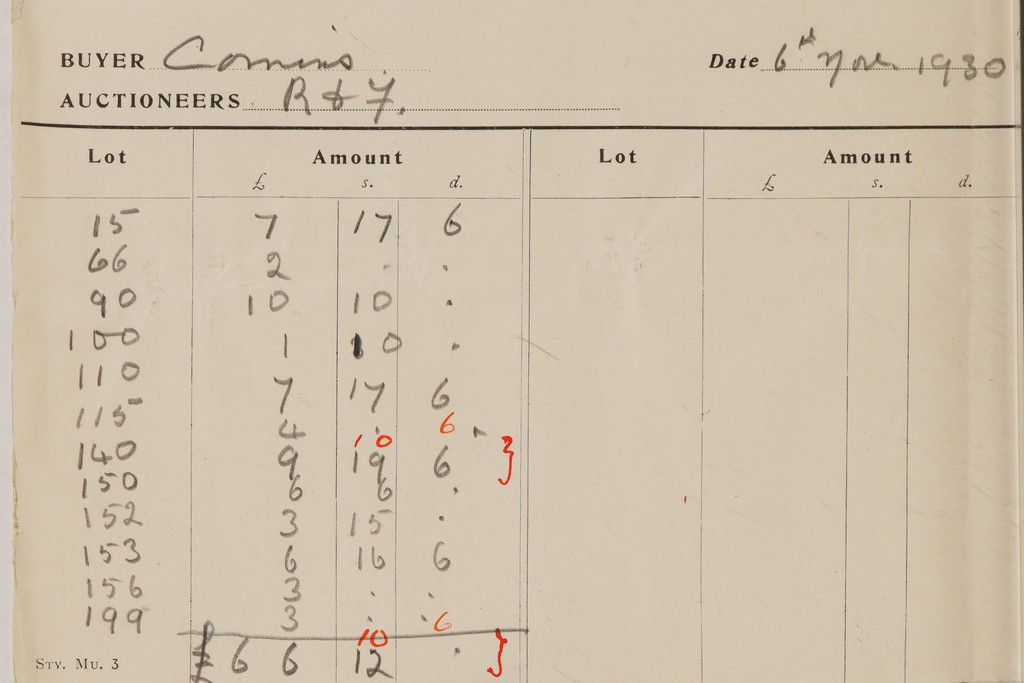 BUYER Comins
Date 6th Nov. 1930
AUCTIONEERS R & F.
Lot Amount Lot Amount
£ s. d. £ s. d.
15 7 17 6
66 2 . .
90 10 10 .
100 1 10 .
110 7 17 6
115 4 . .
10 6
140 9 19 6 }
150 6 6 .
152 3 15 .
153 6 16 6
156 3 . .
199 3 . .
10 6
£66 12 . }
STY. MU. 3